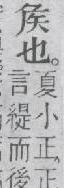 矦也。
夏小正。正
言緹而後